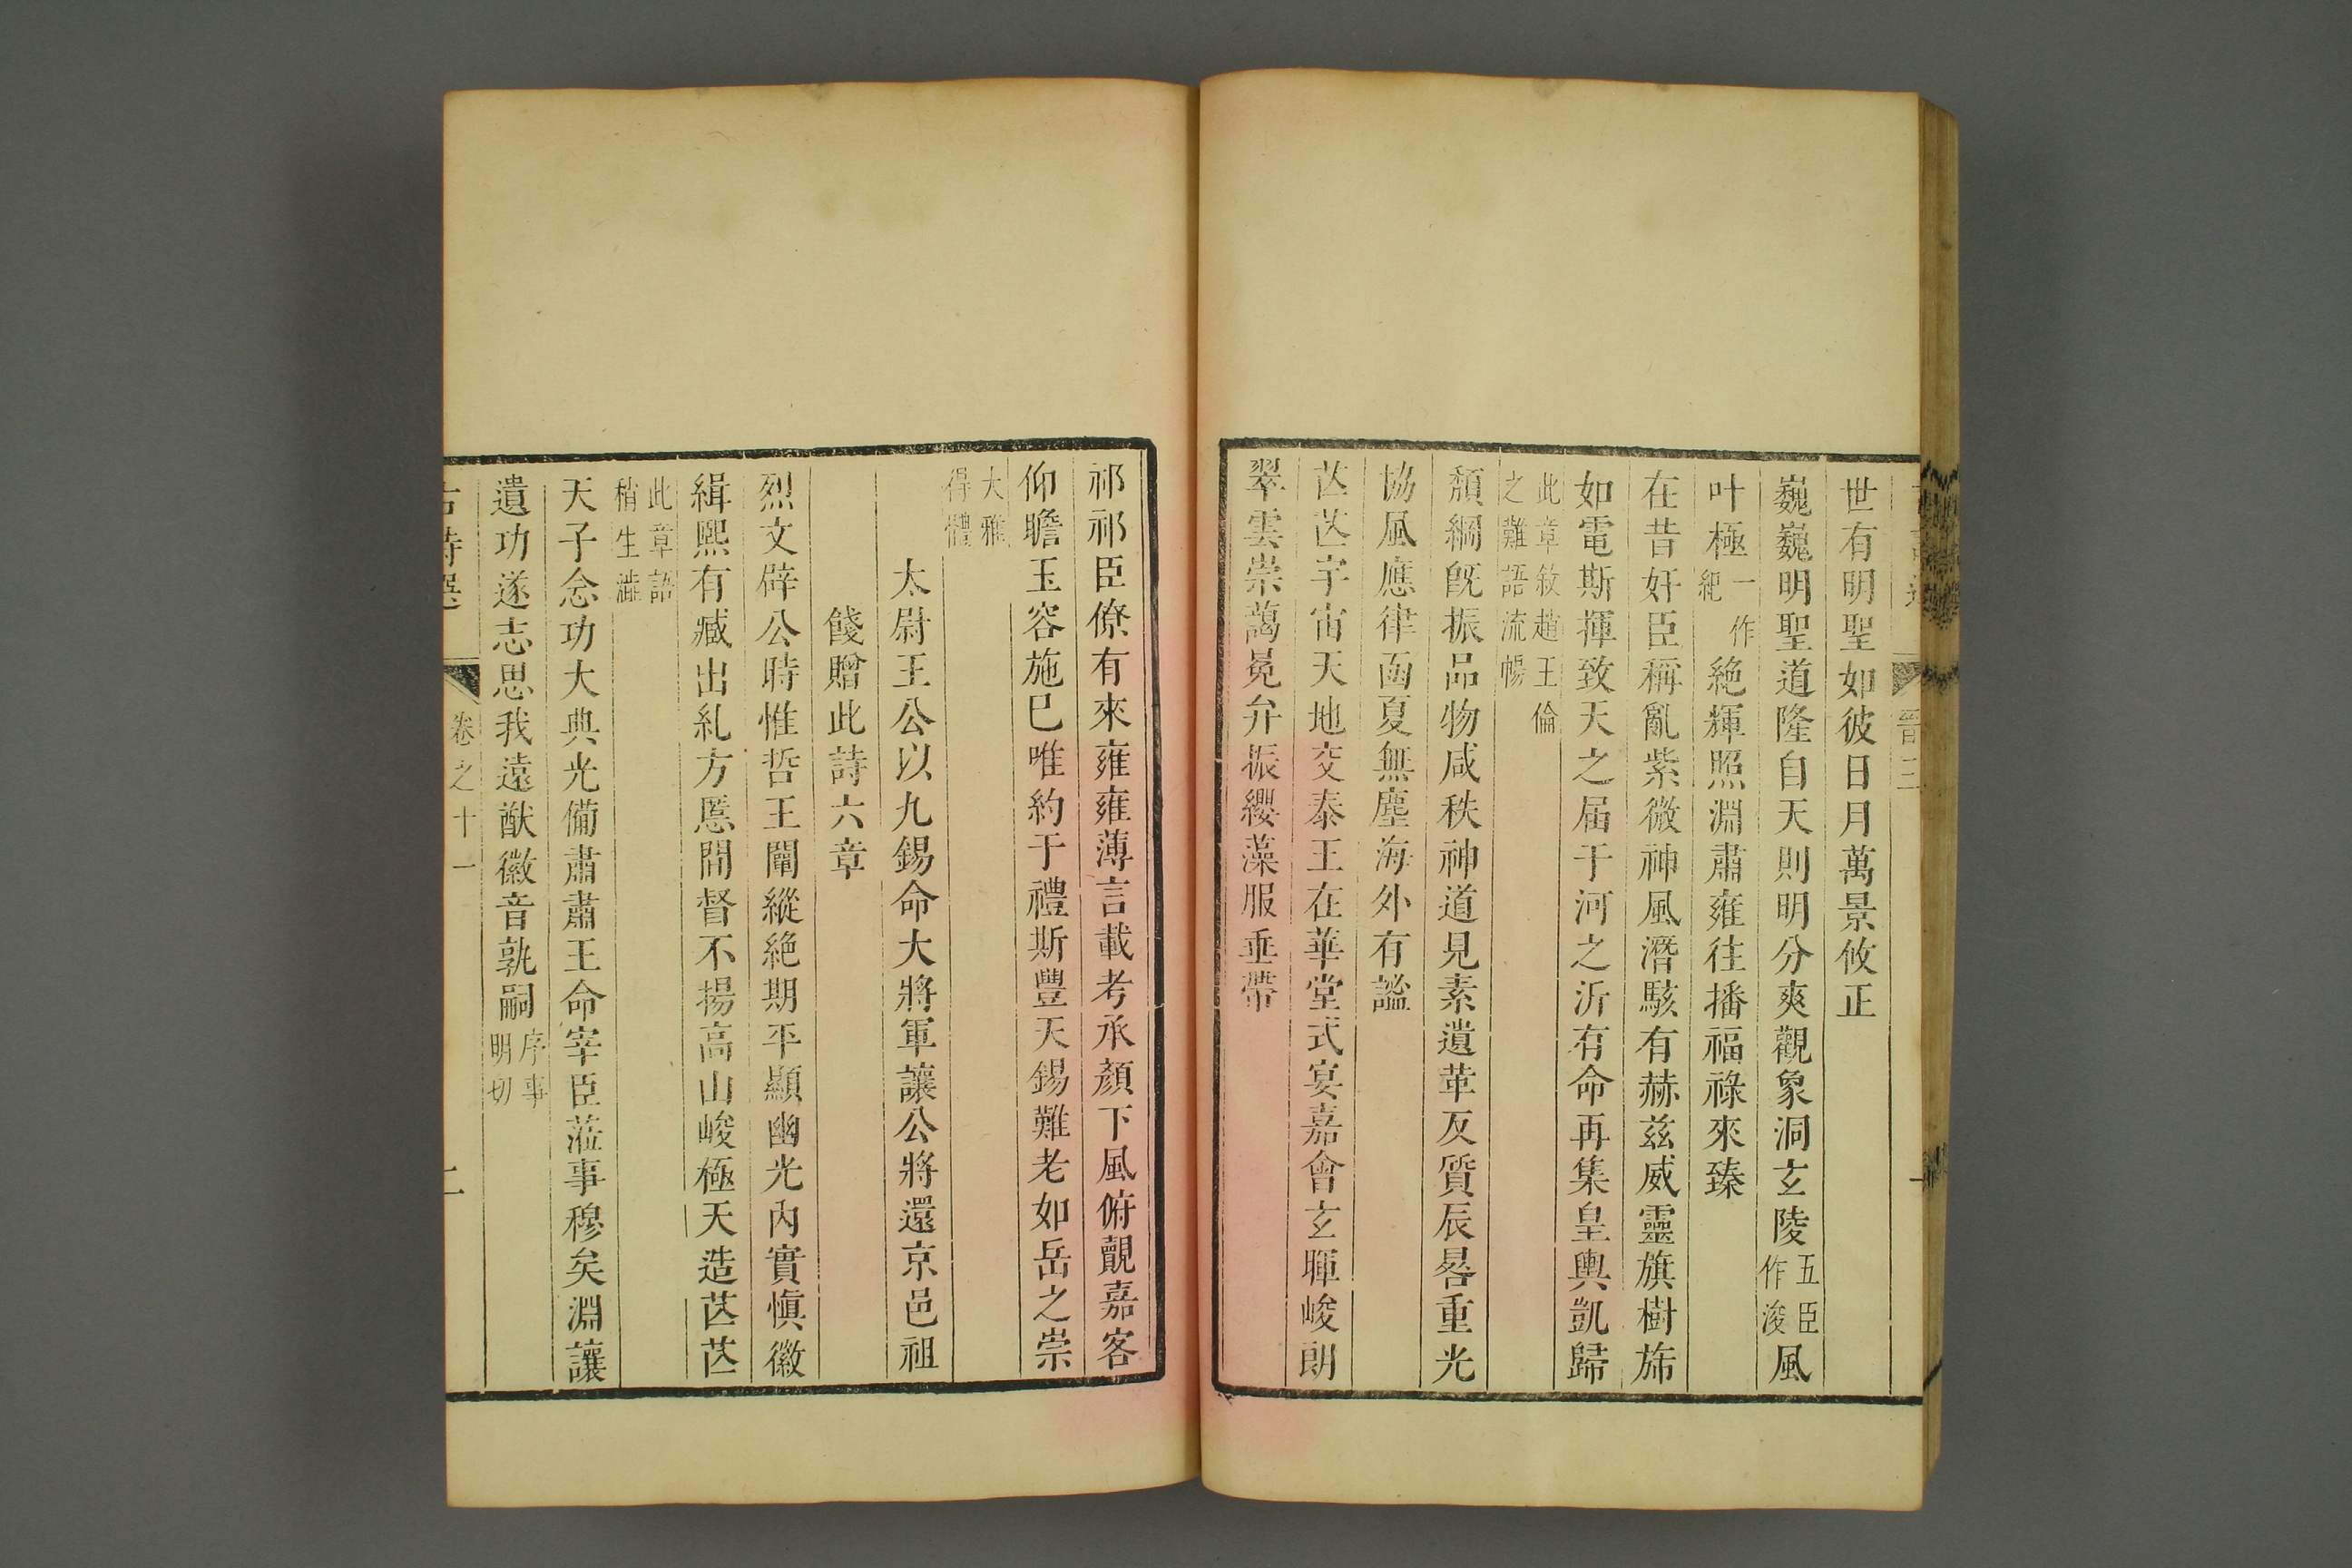 晉三
世有明聖如彼日月萬景攸正
巍巍明聖道隆自天則明分爽觀象洞玄陵五臣作浚風
叶極一作紀絶輝照淵肅雍往播福祿來臻
在昔奸臣稱亂紫微神風潛駭有赫茲威靈旗樹斾
如電斯揮致天之届于河之沂有命再集皇輿凱歸
此章敘趙王倫之難語流暢
頹綱旣振品物咸秩神道見素遺華反質辰晷重光
協風應律函夏無塵海外有謐
芒芒宇宙天地交泰王在華堂式宴嘉會玄暉峻朗
翠雲崇藹冕弁振纓藻服垂帶
祁祁臣僚有來雍雍薄言載考承顏下風俯覿嘉客
仰瞻玉容施已唯約于禮斯豐天錫難老如岳之崇
大雅得體
太尉王公以九錫命大將軍讓公將還京邑祖
餞贈此詩六章
烈文辟公時惟哲王闡縱絶期平顯幽光內實愼徽
緝熙有臧出糺方慝間督不揚高山峻極天造芒芒
此章語稍生澁
天子念功大典光備肅肅王命宰臣蒞事穆矣淵讓
遺功遂志思我遠猷徽音孰嗣序事明切
古詩選 卷之十一 二